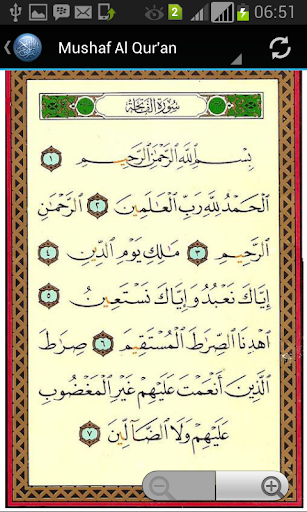 2 06:51
Mushaf Al Qur'an
سورة الفاتحة
بِسْمِ ٱللَّهِ ٱلرَّحْمَٰنِ ٱلرَّحِيمِ ١
ٱلْحَمْدُ لِلَّهِ رَبِّ ٱلْعَٰلَمِينَ ٢ ٱلرَّحْمَٰنِ
ٱلرَّحِيمِ ٣ مَٰلِكِ يَوْمِ ٱلدِّينِ ٤
إِيَّاكَ نَعْبُدُ وَإِيَّاكَ نَسْتَعِينُ ٥
ٱهْدِنَا ٱلصِّرَٰطَ ٱلْمُسْتَقِيمَ ٦ صِرَٰطَ
ٱلَّذِينَ أَنْعَمْتَ عَلَيْهِمْ غَيْرِ ٱلْمَغْضُوبِ
عَلَيْهِمْ وَلَا ٱلضَّآلِّينَ ٧